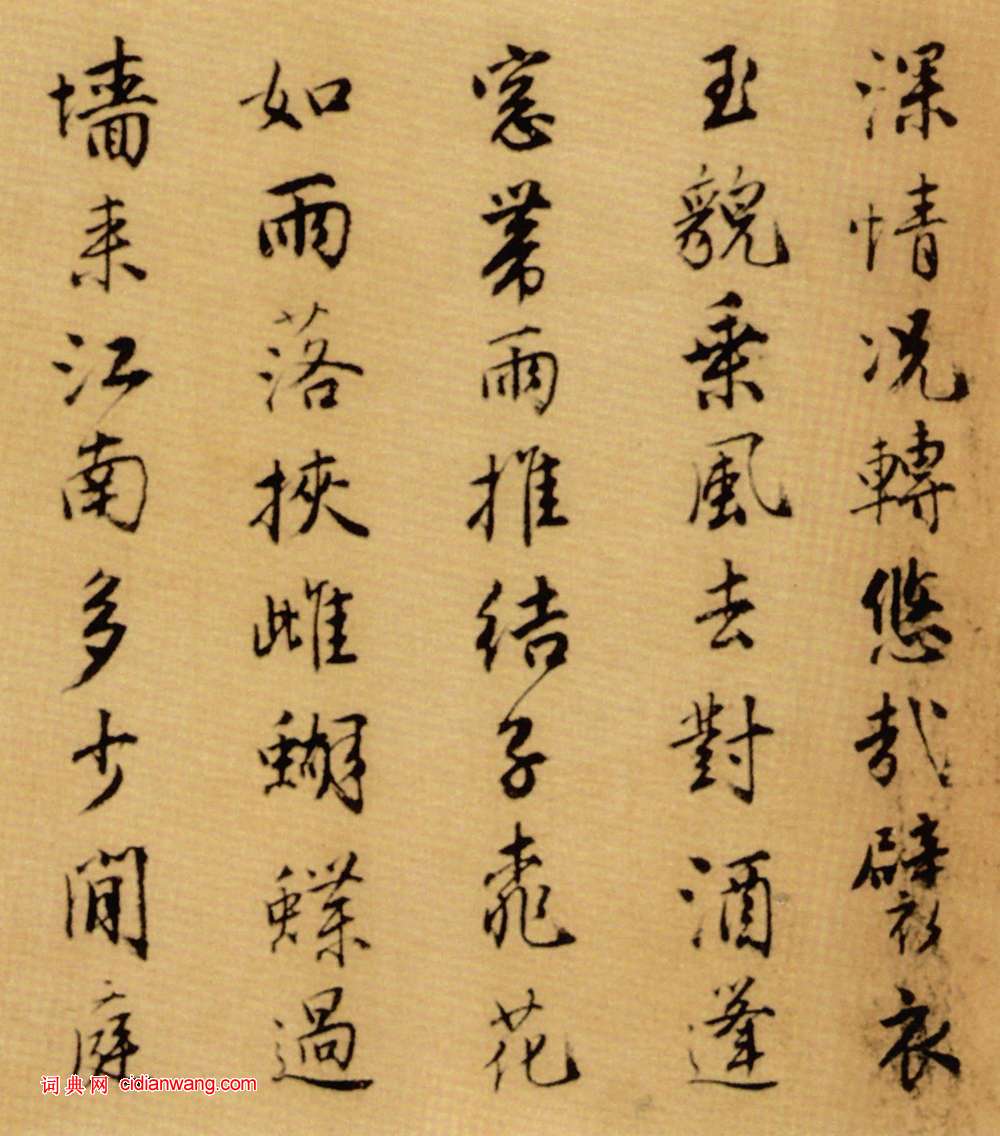 深情况轉悠哉襞衣
玉貌乘風去對酒蓬
窓帶雨推結子桃花
如雨落挾雌蝴蝶過
墻来江南多少閒庭
词典网 cidianwang.com